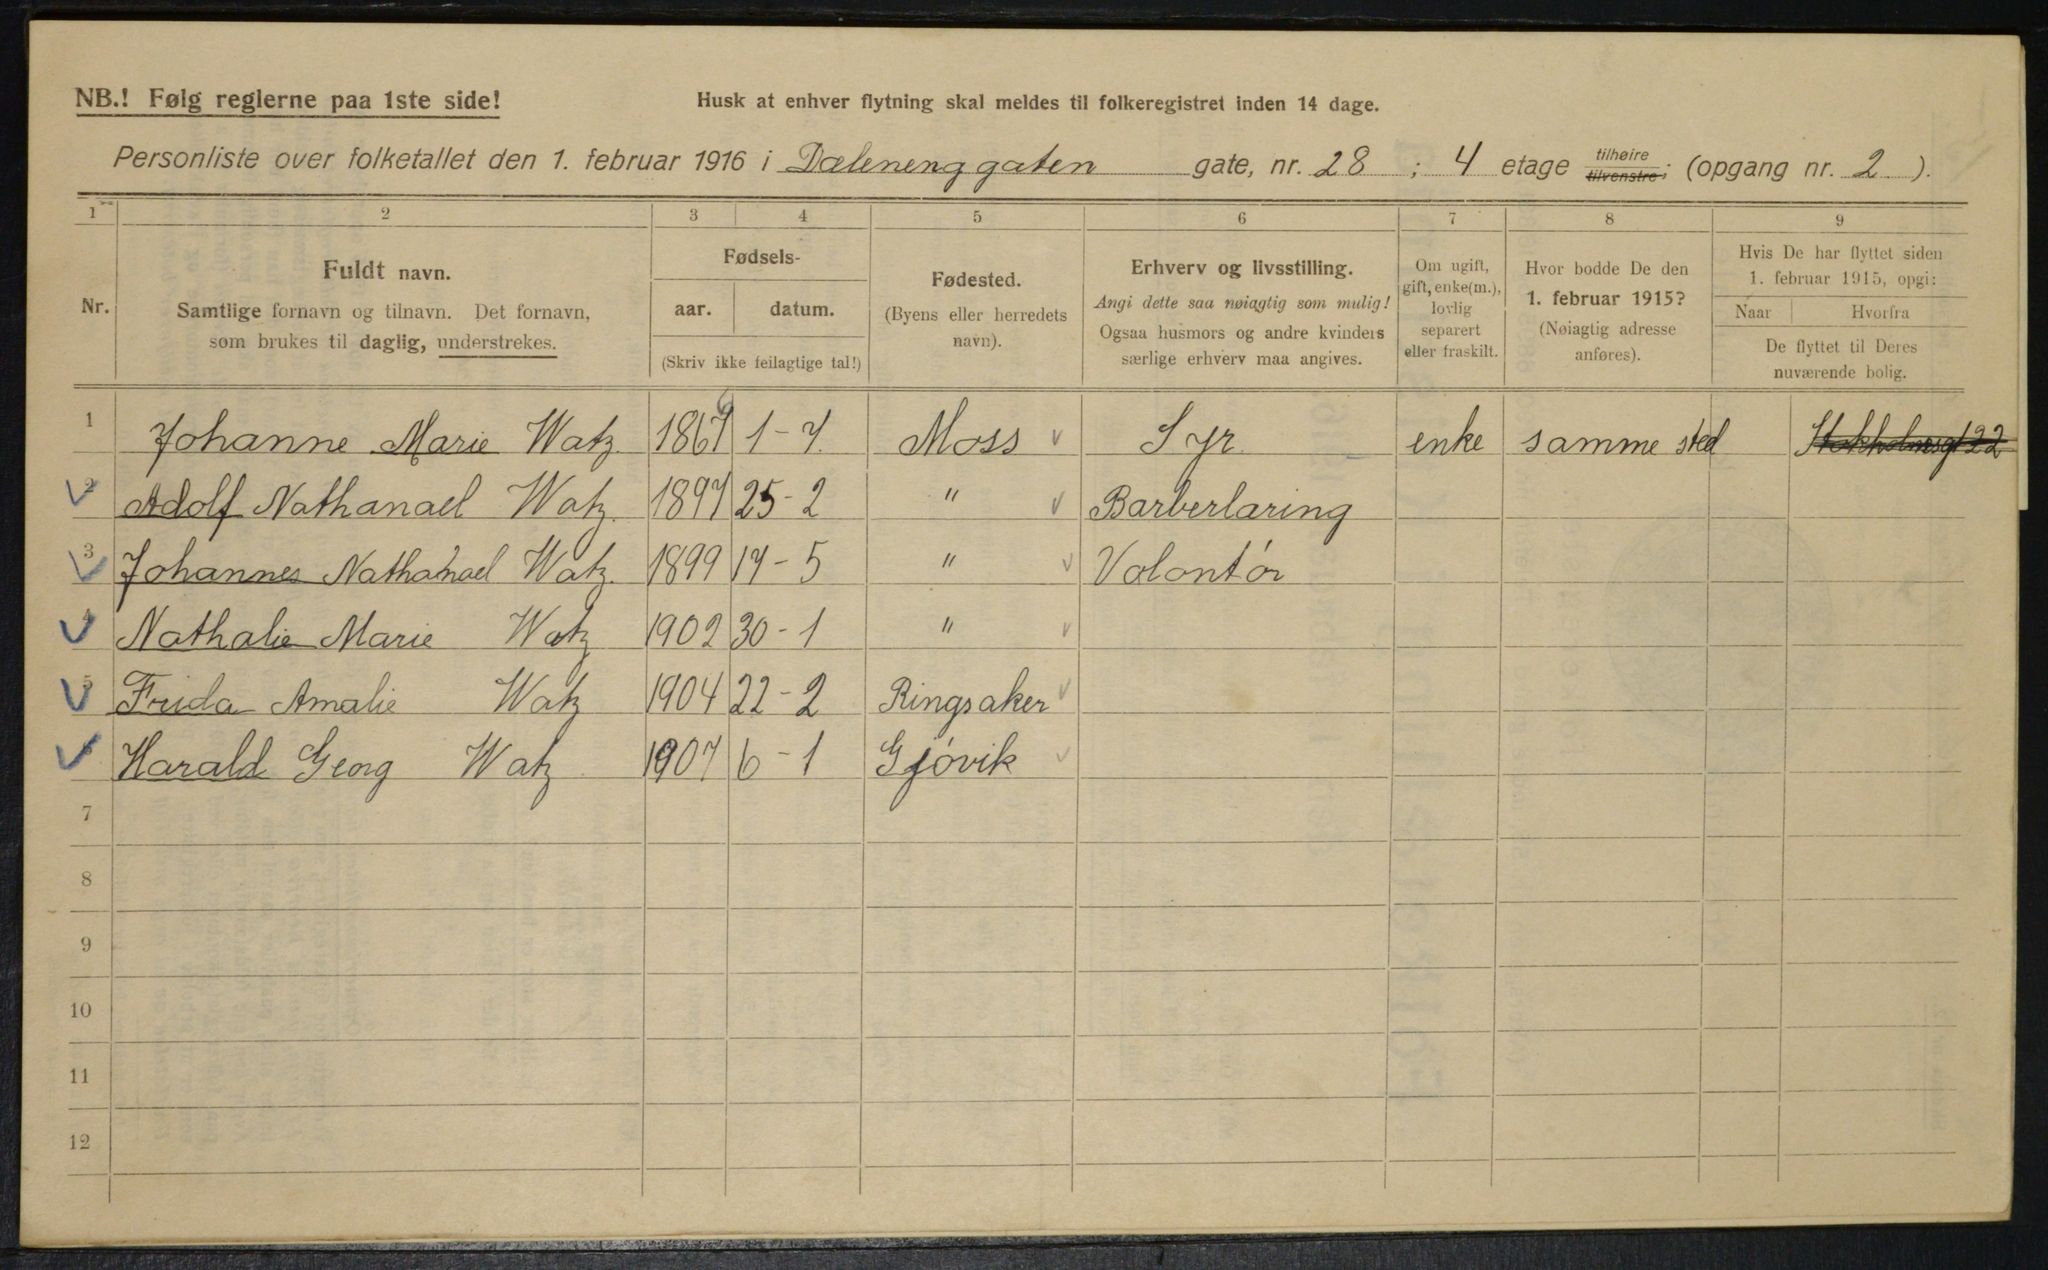 NB.! Følg reglerne paa 1ste side!
Husk at enhver flytning skal meldes til folkeregistret inden 14 dage.
Personliste over folketallet den 1. februar 1916 i Dælenenggaten gate, nr. 28 ; 4 etage tilhøire tilvenstre; (opgang nr. 2 ).
1 2 3 4 5 6 7 8 9
Nr.
Fuldt navn.
Samtlige fornavn og tilnavn. Det fornavn,
som brukes til daglig, understrekes.
Fødsels-
aar. datum.
(Skriv ikke feilagtige tal!)
Fødested.
(Byens eller herredets
navn).
Erhverv og livsstilling.
Angi dette saa nøiagtig som mulig!
Ogsaa husmors og andre kvinders
særlige erhverv maa angives.
Om ugift,
gift, enke(m.),
lovlig
separert
eller fraskilt.
Hvor bodde De den
1. februar 1915?
(Nøiagtig adresse
anføres).
Hvis De har flyttet siden
1. februar 1915, opgi:
Naar Hvorfra
De flyttet til Deres
nuværende bolig.
1 Johanne Marie Watz. 1-7. Moss Syr. enke samme sted Stokholmsgt 22
2 Adolf Nathanael Watz. 1897 25-2 " Barberlæring
3 Johannes Nathanael Watz. 1899 17-5 " Volontør
4 Nathalie Marie Watz 1902 30-1 "
5 Frida Amalie Watz 1904 22-2 Ringsaker
6 Harald Georg Watz 1907 6-1 Gjøvik
7
8
9
10
11
12